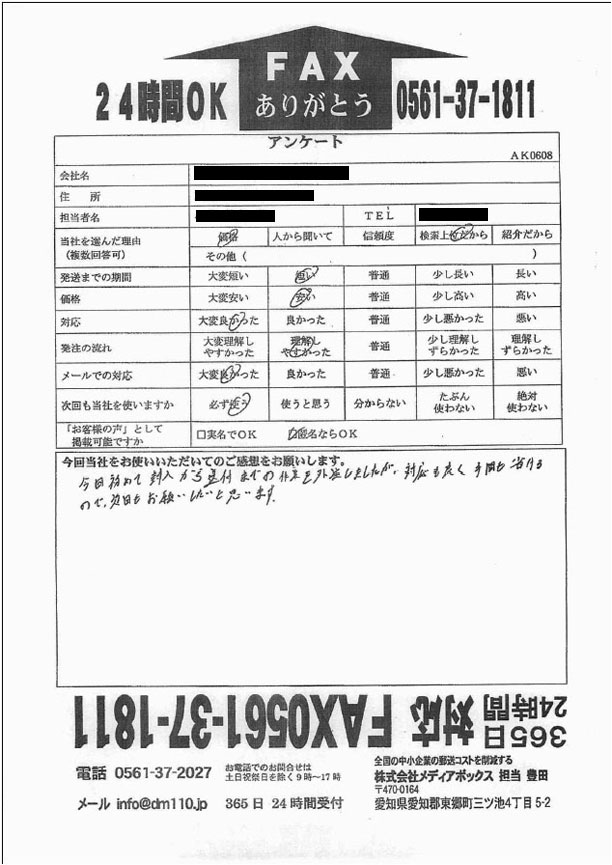 FAX
24時間OK ありがとう 0561-37-1811
アンケート
AK0608
会社名
住 所
担当者名 TEL
当社を選んだ理由 価格 人から聞いて 信頼度 検索上位だから 紹介だから
(複数回答可) その他 ( )
発送までの期間 大変短い 短い 普通 少し長い 長い
価格 大変安い 安い 普通 少し高い 高い
対応 大変良かった 良かった 普通 少し悪かった 悪い
発注の流れ 大変理解しやすかった 理解しやすかった 普通 少し理解しずらかった 理解しずらかった
メールでの対応 大変良かった 良かった 普通 少し悪かった 悪い
次回も当社を使いますか 必ず使う 使うと思う 分からない たぶん使わない 絶対使わない
「お客様の声」として
掲載可能ですか 口実名でOK 口匿名ならOK
今回当社をお使いいただいてのご感想をお願いします。
今回初めて封入から送付までの作業を外注しましたが、対応も良く手間も省ける
ので、次回もお願いしたいと思います。
365日24時間対応 FAX0561-37-1811
電話 0561-37-2027 お電話でのお問合せは
土日祝祭日を除く9時~17時
メール info@dm110.jp 365日 24時間受付
全国の中小企業の郵送コストを削減する
株式会社メディアボックス 担当 豊田
〒470-0164
愛知県愛知郡東郷町三ツ池4丁目5-2